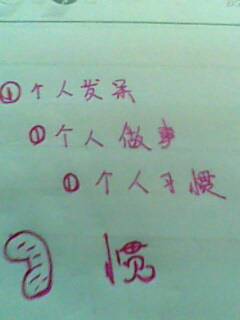 ①个人发呆
①个人做事
①个人习惯
习惯